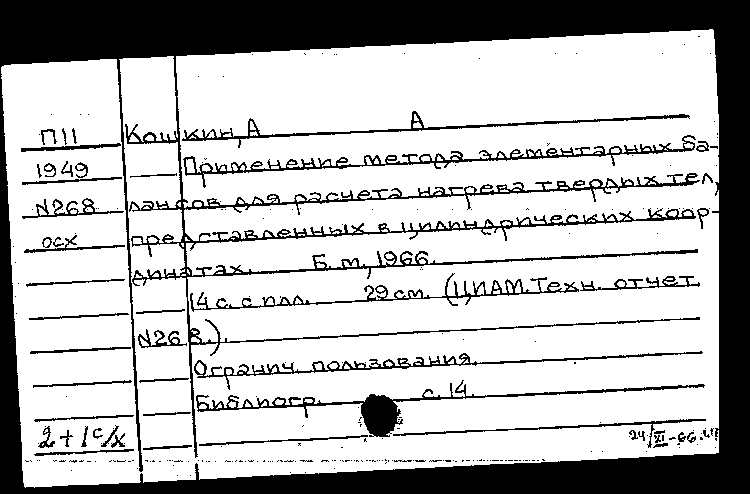 П11 Кошкин, А А
1949 Применение метода элементарных ба-
N268 лансов для расчета нагрева твердых тел,
осх представленных в цилиндрических коор-
динатах. Б.м., 1966.
14 с. с илл. 29 см. (ЦИАМ. Техн. отчет
N268.).
Огранич. пользования.
Библиогр. с. 14.
2+1с/х
24/XI-66.